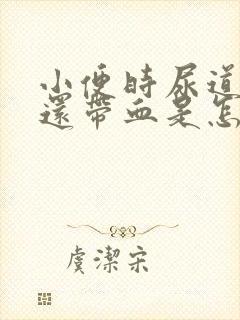 小便時尿道
還帶血是怎
虞潔宋